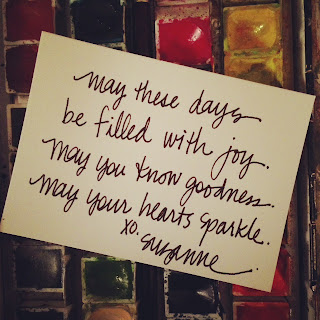 may these days
be filled with joy.
may you know goodness.
may your hearts sparkle.
xo.
suzanne.